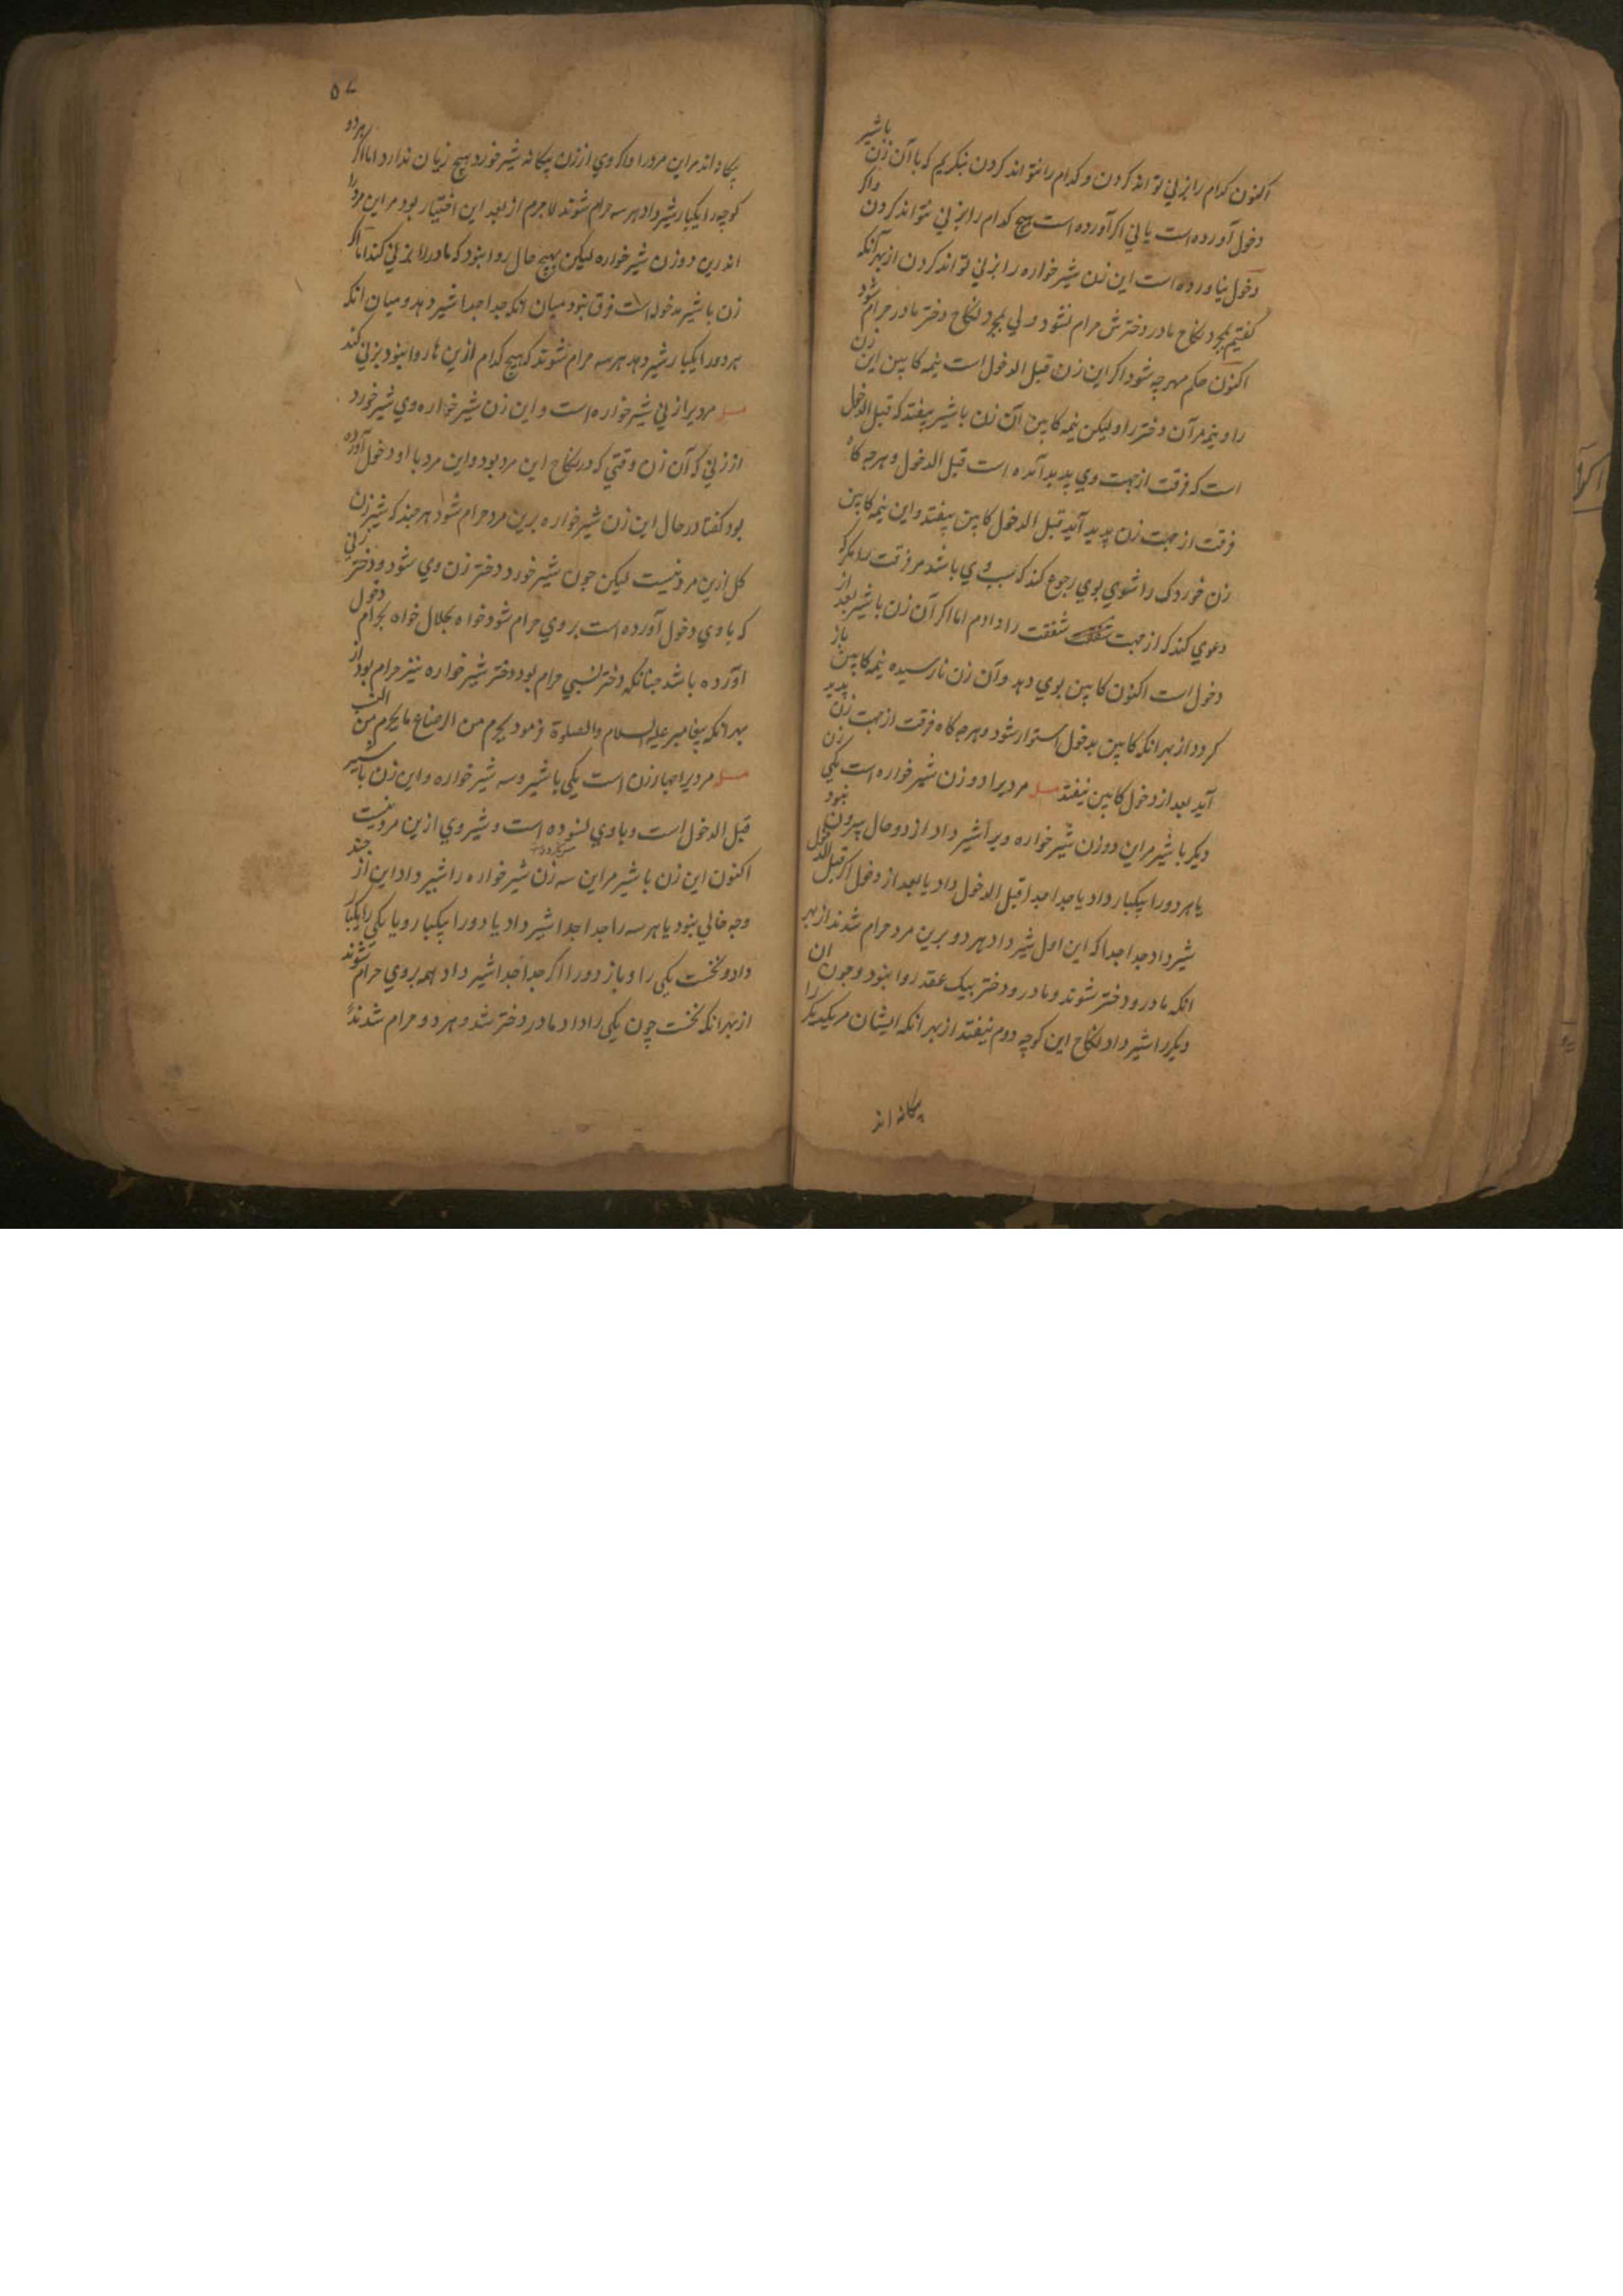 اکنون کدام را بزنی تواند کردن و کدام را نتواند کردن بنکریم که با آن زن باشیر
دخول آورده است یا نی اکر آورده است هیچ کدام را بزنی نتواند کردن واکر
دخول نیاورده است این زن شیر خواره را بزنی تواند کردن از بهر آنکه
کفتیم بمجرد نکاح مادر دخترش حرام نشود ولی بمجرد نکاح دختر مادر حرام شود
اکنون حکم مهر چه شود اکر این زن قبل الدخول است نیمه کابین این زن
را و نیمه مر آن دختر را ولیکن نیمه کابین آن زن باشیر بیفتد که قبل الدخول
است که فرقت از جهت وی پدید آمده است قبل الدخول و هرجه کاه
فرقت از جهت زن پدید آید قبل الدخول کابین بیفتد و این نیمه کابین
زن خوردک را شوی بوی رجوع کند که سبب وی باشد مر فرقت را مکر که
دعوی کند که از جهت شفقت را دادم اما اکر آن زن باشیر بعد از
دخول است اکنون کابین بوی دهد و آن زن نارسیده نیمه کابین باز
کردد از بهر انکه کابین بدخول استوار شود و هرجه کاه فرقت از جهت زن پدید
آید بعد از دخول کابین نیفتد مسله مردیرا دو زن شیر خواره است یکی زن
دیکر باشیر مر این دو زن شیر خواره ویرا شیر داد از دو حال بیرون نبود
یا هر دو را بیکبار داد یا جدا جدا قبل الدخول داد یا بعد از دخول اکر قبل الدخول
شیر داد جدا جدا که این اول شیر داد هر دو برین مرد حرام شدند از بهر
انکه مادر و دختر شوند و مادر و دختر بیک عقد روا نبود و جون ان
دیکر را شیر داد نکاح این کوچه دوم نیفتد از بهر انکه ایشان مر یکدیکر را
بیکانه اند
۵۷
بیکانه اند مر این مرد را واکر وی از زن بیکانه شیر خورد هیچ زیان ندارد اما اکر هر دو
کوچه را یکبار شیر داد هر سه حرام شوند لاجرم از بعد این اختیار بود مر این مرد را
اندرین دو زن شیر خواره لیکن بهیچ حال روا نبود که مادر را بزنی کند اما اکر
زن باشیر مدخوله است فرق نبود میان انکه جدا جدا شیر دهد و میان انکه
هر دو را یکبار شیر دهد هر سه حرام شوند که هیچ کدام ازین ها روا نبود بزنی کند
مسله مردیرا زنی شیر خواره است و این زن شیر خواره وی شیر خورد
از زنی که آن زن وقتی که در نکاح این مرد بود و این مرد با او دخول آورده
بود کفتا در حال این زن شیر خواره برین مرد حرام شود هر جند که شیر زن
کل ازین مرد نیست لیکن جون شیر خورد دختر زن وی شود و دختر زنی
که با وی دخول آورده است بر وی حرام شود خواه بحلال خواه بحرام دخول
آورده باشد جنانکه دختر نسبی حرام بود دختر شیر خواره نیز حرام بود از
بهر انکه پیغامبر علیه السلام والصلوة فرمود یحرم من الرضاع ما یحرم من النسب
مسله مردیرا جهار زن است یکی باشیر و سه شیر خواره و این زن باشیر
قبل الدخول است و با وی نسوده است و شیر وی ازین مرد نیست
اکنون این زن باشیر مر این سه زن شیر خواره را شیر داد این از جند
وجه خالی نبود یا هر سه را جدا جدا شیر داد یا دو را بیکبار و یا یکی را یکبار
داد و نخست یکی را و باز دو را اکر جدا جدا شیر داد همه بر وی حرام شوند
از بهر انکه نخست چون یکی را داد مادر دختر شد و هر دو حرام شدند